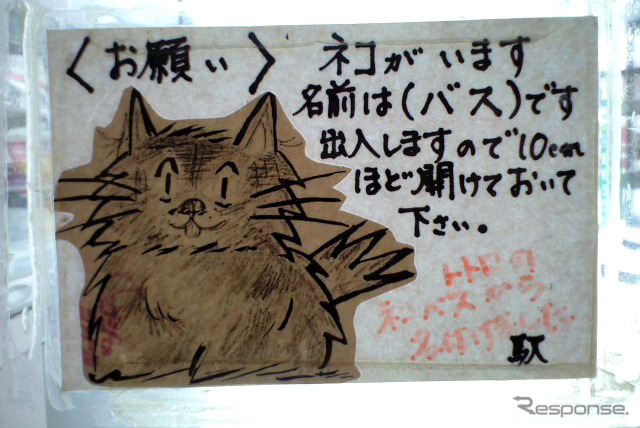 〈お願い〉
ネコがいます
名前は(バス)です
出入しますので10cm
ほど開けておいて
下さい。
トトロの
ネコバスから
名付けました
駅
Response.